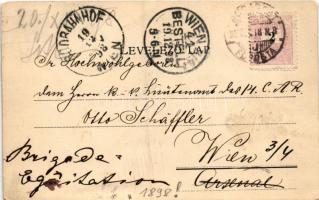 20./X
SÜDBAHNHOF
18
98
WIEN
4
BEST
19.12
LEVELEZŐ-LAP
Sr Hochwohlgeboren
dem Herrn k. k. Lieutenant des 14. C. A. R.
Otto Schäffler
Wien 3/4
Arsenal
Brigade-
Equitation
1898!